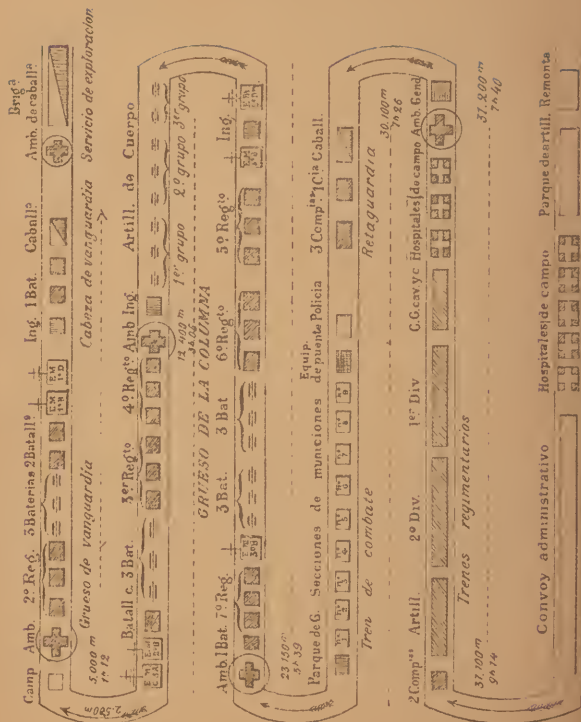 Brigª
Camp Amb. 2º Reg. 3 Baterias 2 Batallª Ing. 1 Bat. Caballª Amb. de caballª
E M 1ª D
5.000 m Grueso de vanguardia Cabeza de vanguardia Servicio de exploracion
1ʰ 12
2.580m
Batall c. 3 Bat. 3er Regto 4º Regto Amb Ing. Artill. de Cuerpo
12 400 m 1er grupo 2º grupo 3er grupo
GRUESO DE LA COLUMNA
Amb. 1 Bat. 7º Reg. 3 Bat. 3 Bat 6º Regto 5º Regto Ing.
23 150m
5ʰ 39
Equip.
Parque de G. Secciones de municiones de puente Policia 3 Compías 1 Cia Caball.
Tren de combate Retaguardia 30,100m
7ʰ 26
2 Compías Artill. 2º Div. 1er Div C.G. cav. y c Hospitales de campo Amb. Gend
Trenes regimentarios
37,100m 37,200m
9ʰ 14 7ʰ 40
Convoy administrativo Hospitales de campo Parque de artill. Remonta